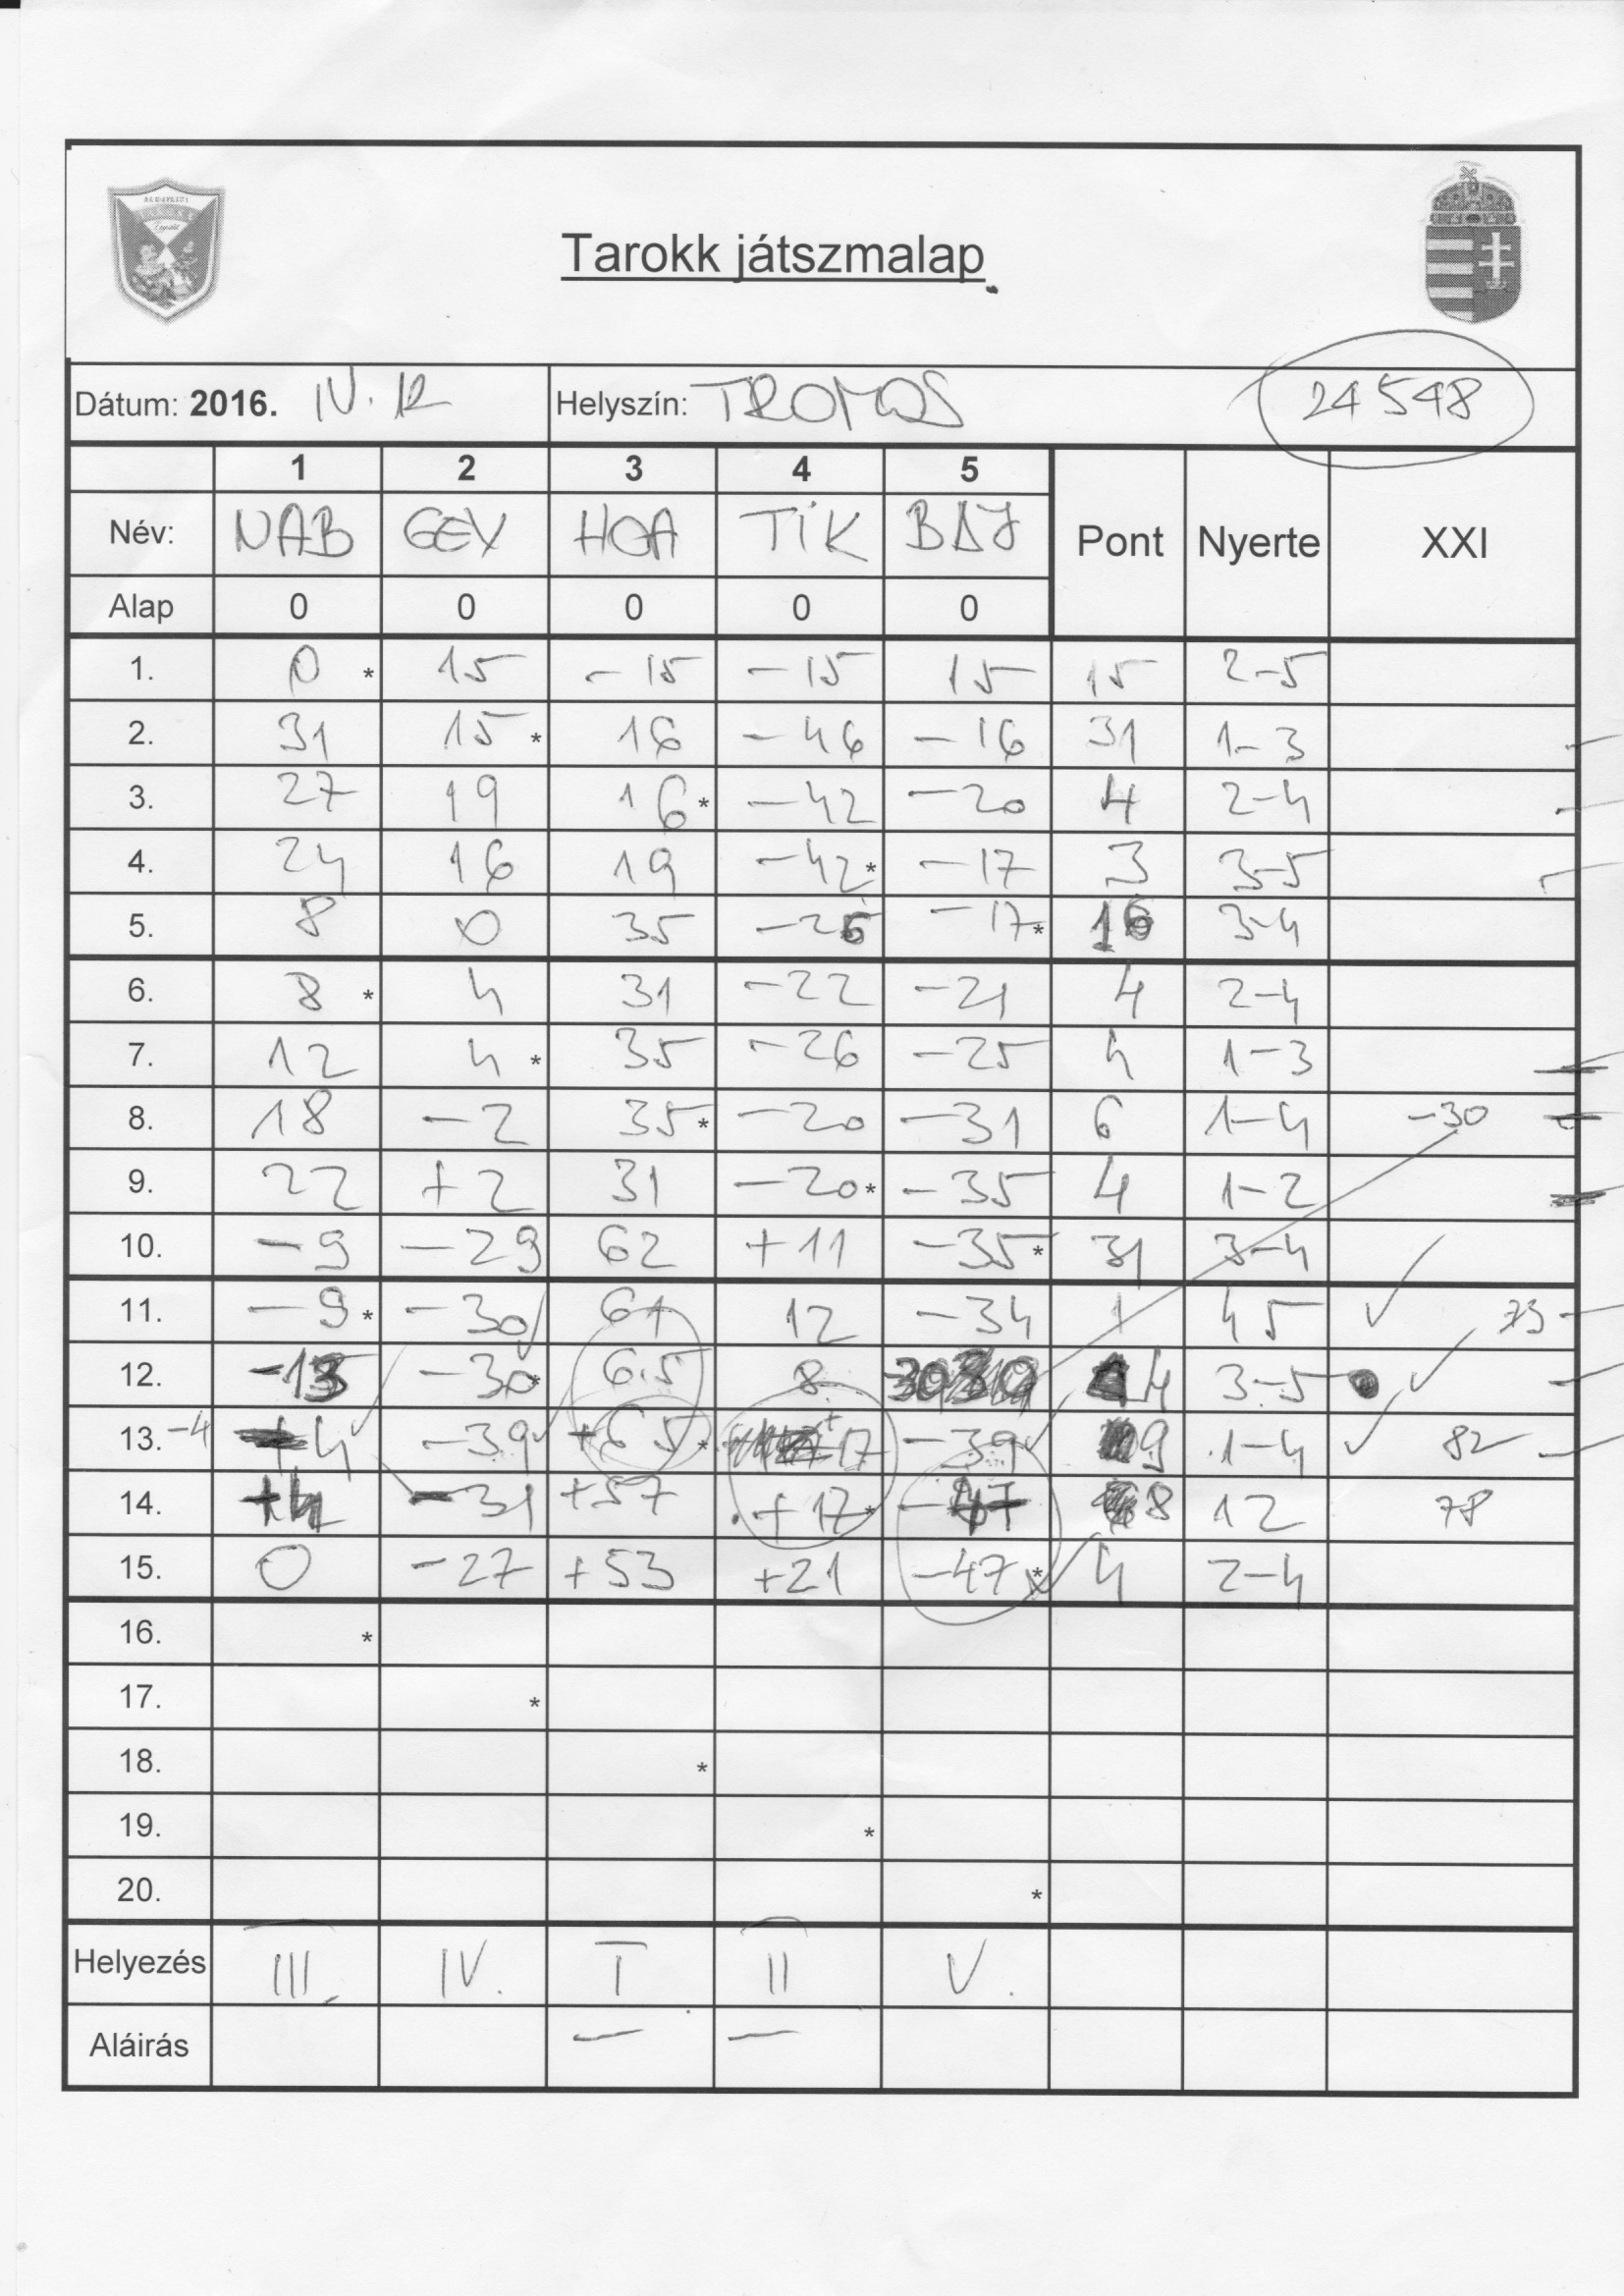 Tarokk játszmalap
Dátum: 2016. IV. 12 Helyszín: TROMOS 24548
1 2 3 4 5 Pont Nyerte XXI
Név: NAB GEY HOA TIK BAJ
Alap 0 0 0 0 0
1. 0 * 15 -15 -15 15 15 2-5
2. 31 15 * 16 -46 -16 31 1-3
3. 27 19 16 * -42 -20 4 2-4
4. 24 16 19 -42 * -17 3 3-5
5. 8 0 35 -26 -17 * 16 3-4
6. 8 * 4 31 -22 -21 4 2-4
7. 12 4 * 35 -26 -25 4 1-3
8. 18 -2 35 * -20 -31 6 1-4 -30
9. 22 +2 31 -20 * -35 4 1-2
10. -9 -29 62 +11 -35 * 31 3-4
11. -9 * -30 61 12 -34 1 4 5 73
12. -13 -30 * 65 8 4 3-5
13. -4 4 -39 +65 * +17 -39 9 1-4 82
14. +4 -31 +57 +17 * -47 8 12 78
15. 0 -27 +53 +21 -47 * 4 2-4
16. *
17. *
18. *
19. *
20. *
Helyezés III. IV. I II V.
Aláirás